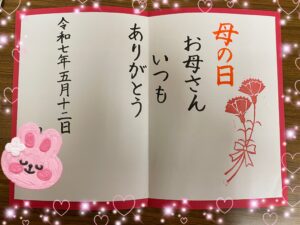 母の日
お母さん
いつも
ありがとう
令和七年五月十二日